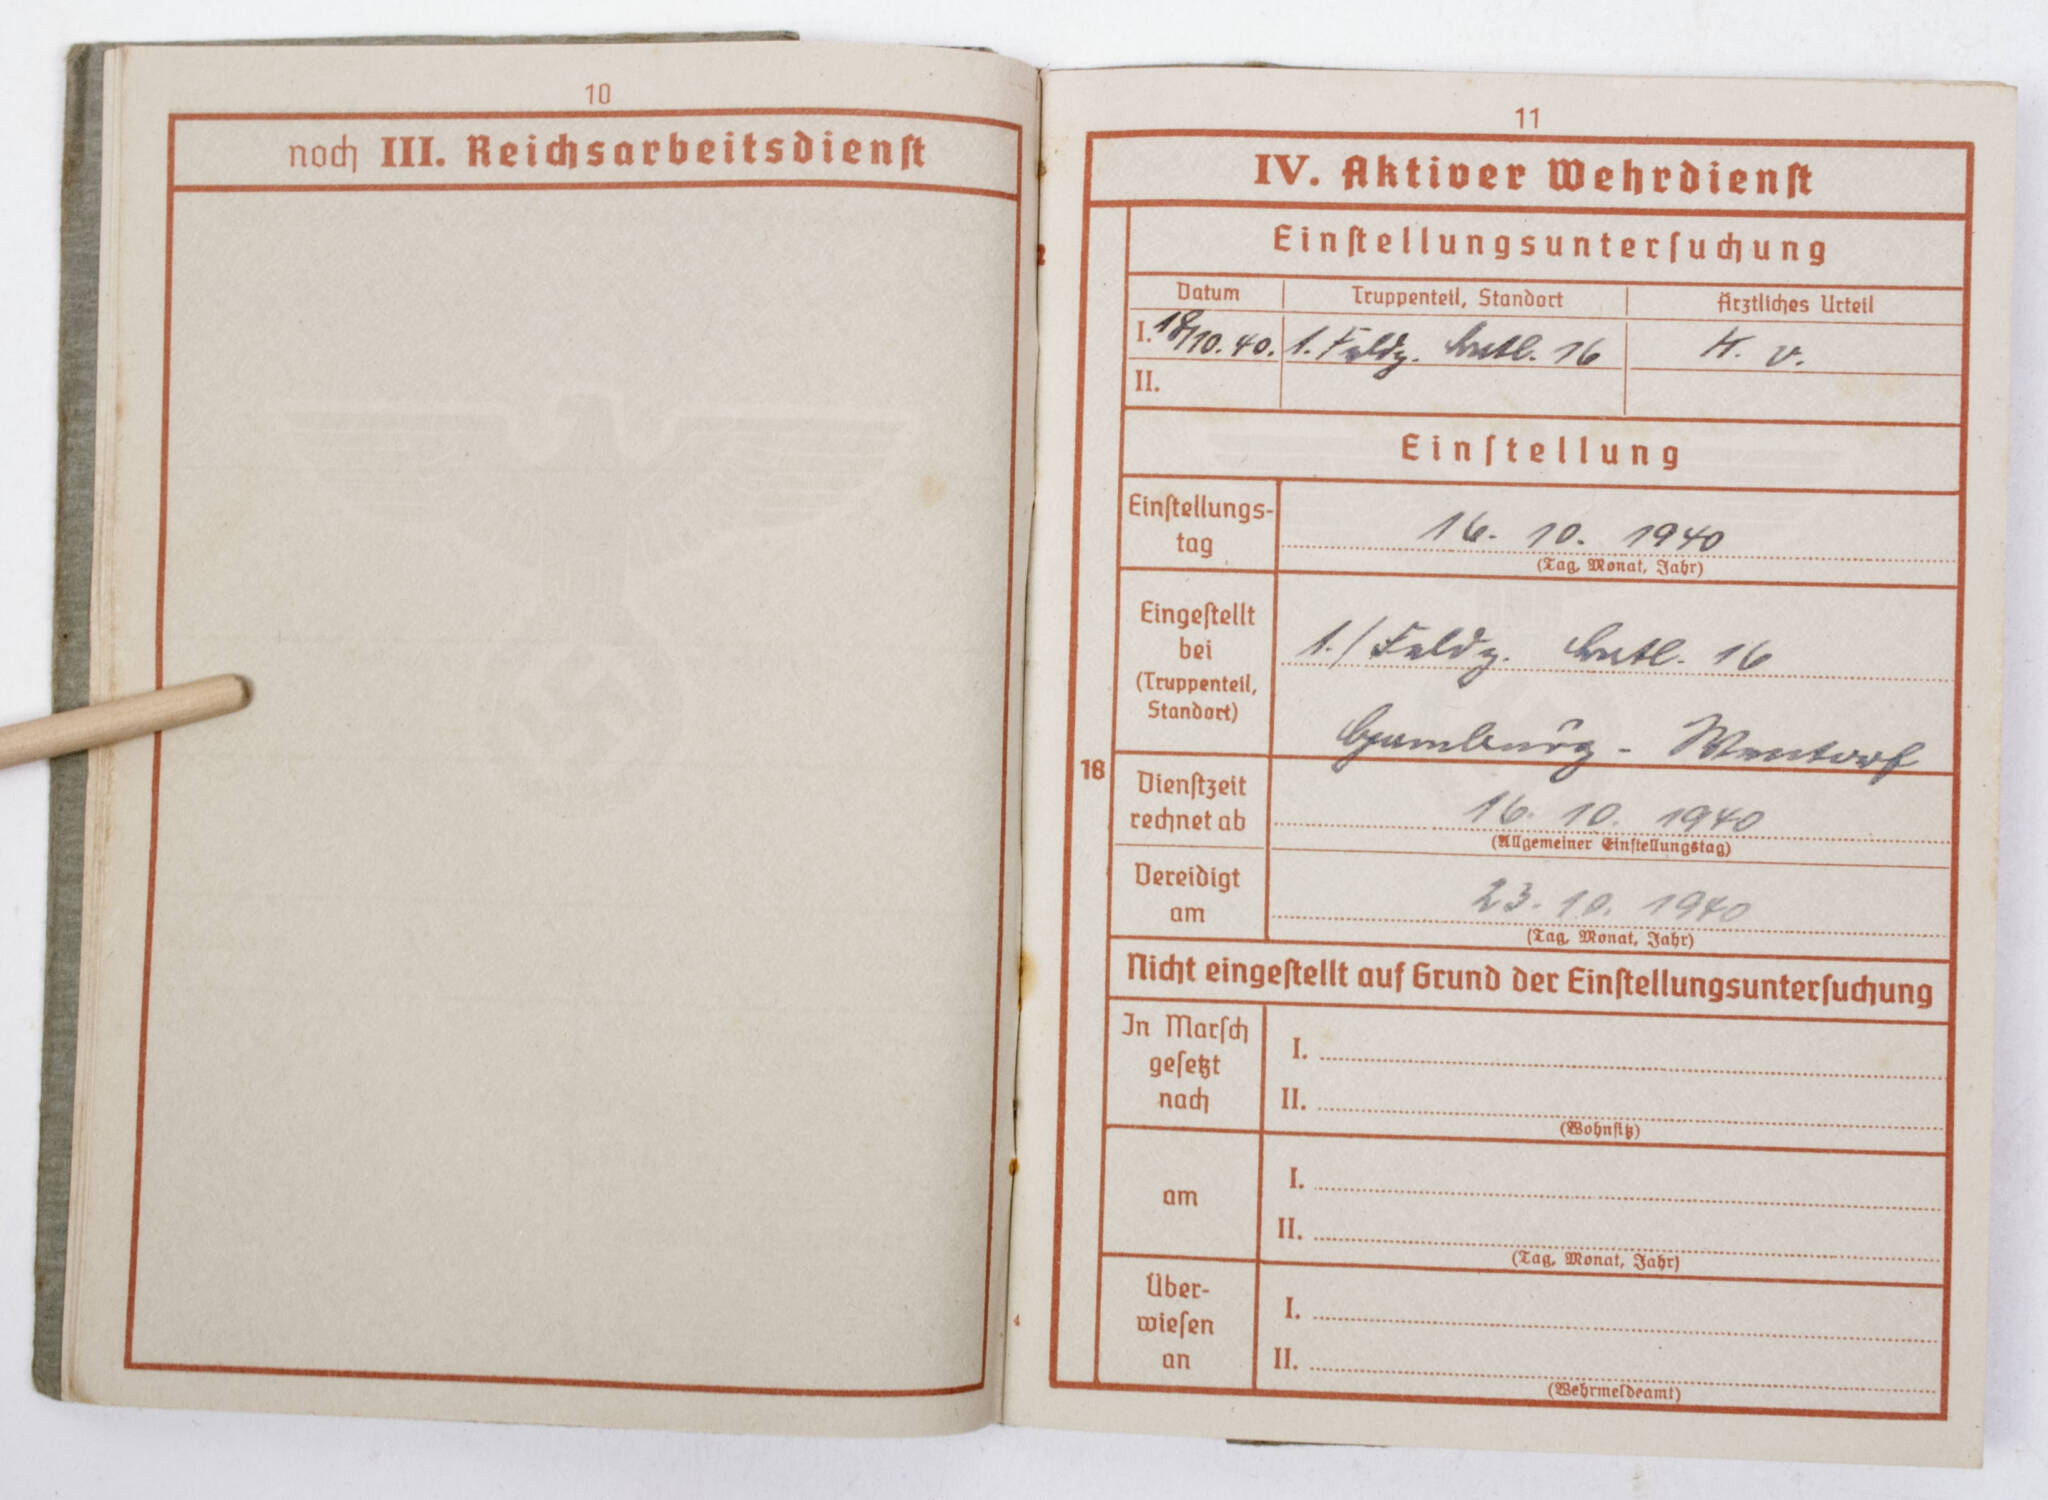 10
noch III. Reichsarbeitsdienst
11
IV. Aktiver Wehrdienst
Einstellungsuntersuchung
Datum Truppenteil, Standort Ärztliches Urteil
I. 18/10.40. 1. Feldz. Battl. 16 K. v.
II.
Einstellung
Einstellungs-
tag
16. 10. 1940
(Tag, Monat, Jahr)
Eingestellt
bei
(Truppenteil,
Standort)
1./ Feldz. Battl. 16
Hamburg - Wentorf
18
Dienstzeit
rechnet ab
16. 10. 1940
(Allgemeiner Einstellungstag)
Vereidigt
am
23. 10. 1940
(Tag, Monat, Jahr)
Nicht eingestellt auf Grund der Einstellungsuntersuchung
In Marsch
gesetzt
nach
I.
II.
(Wohnsitz)
am
I.
II.
(Tag, Monat, Jahr)
Über-
wiesen
an
I.
II.
(Wehrmeldeamt)
4